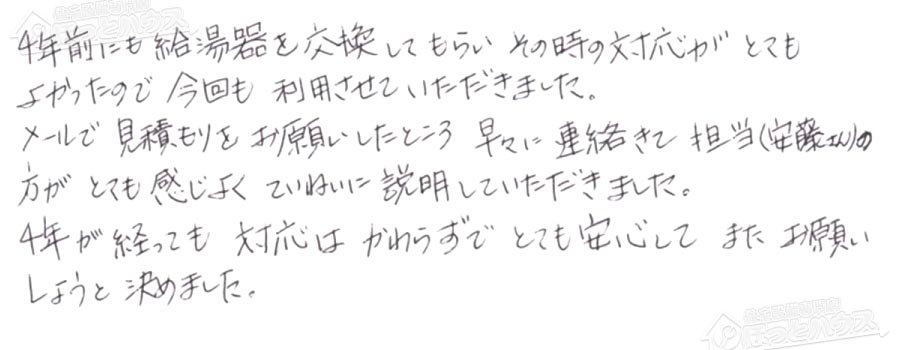 4年前にも給湯器を交換してもらい その時の対応が とても
よかったので 今回も 利用させていただきました。
メールで 見積もりを お願いしたところ 早々に 連絡きて 担当(安藤さん)の
方が とても感じよく ていねいに 説明していただきました。
4年が 経っても 対応は かわらずで とても安心して また お願い
しようと 決めました。
ほっとハウス
ほっとハウス